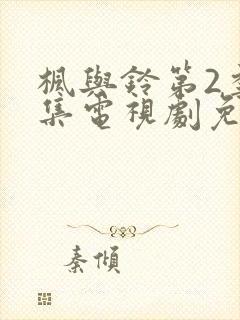 楓與鈴第2季
集電視劇免
秦傾